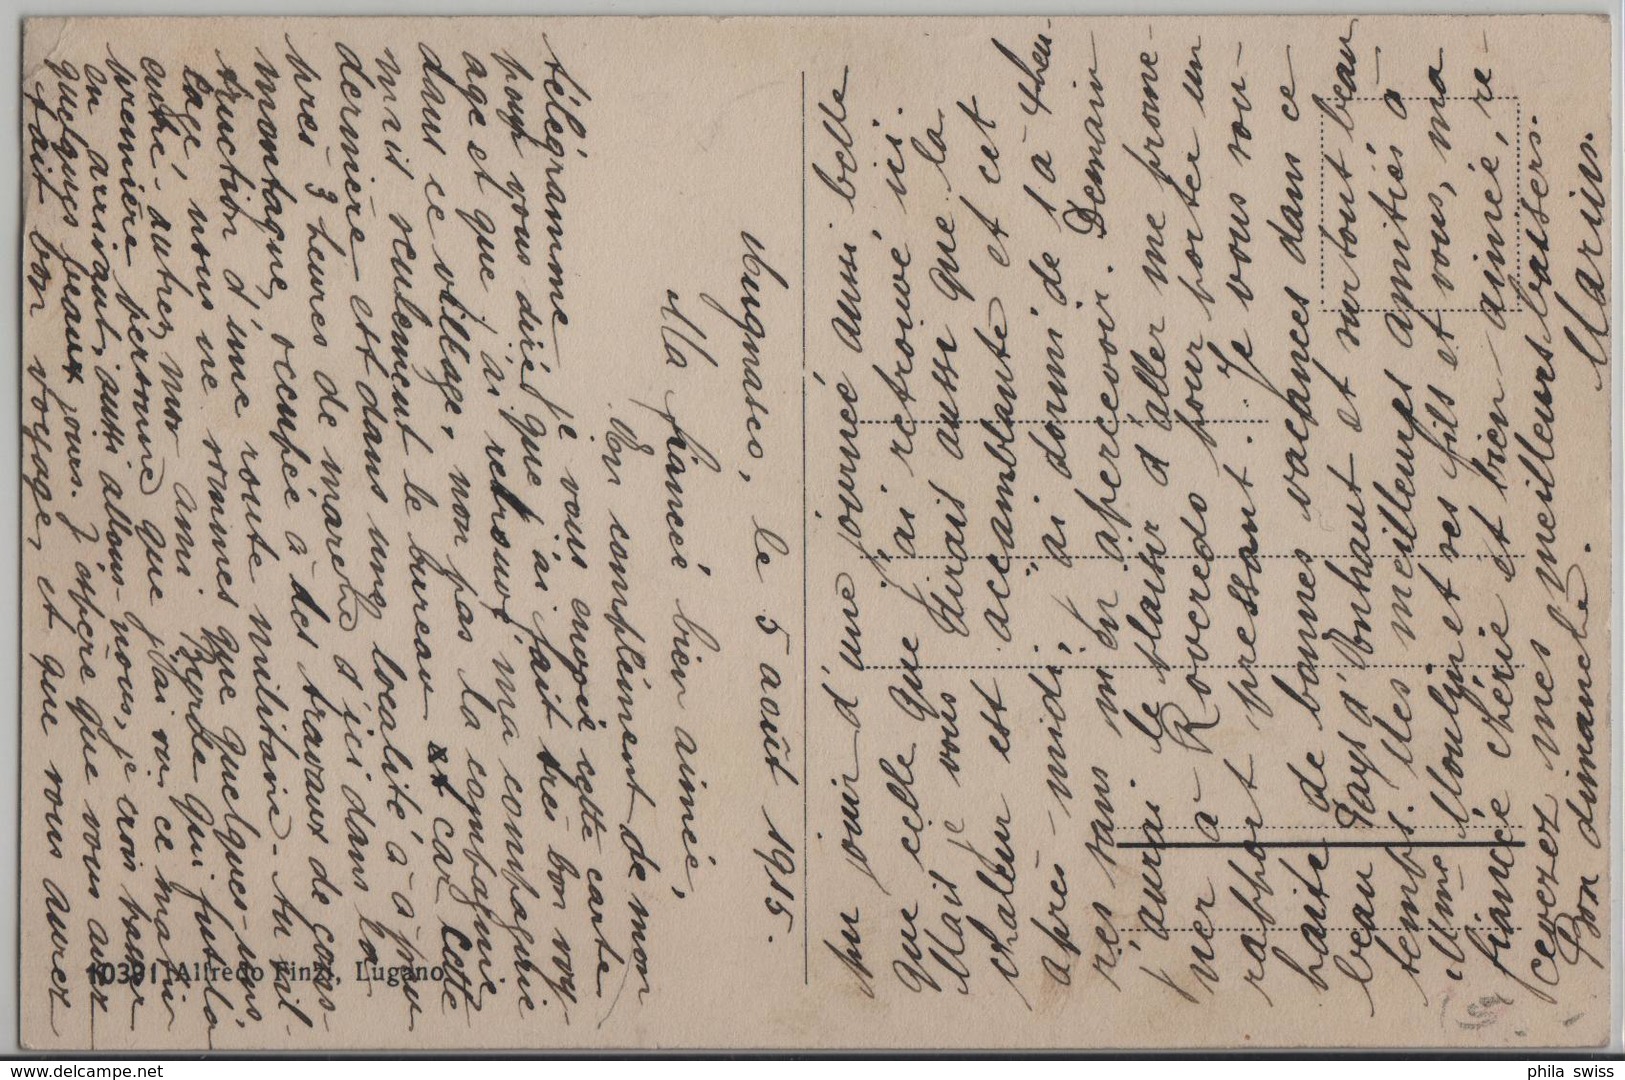 Mugnasco, le 5 août 1915.
Ma fiancée bien aimée,
En complément de mon
télégramme je vous envoie cette carte
pour vous dire que j'ai fait très bon voy-
age et que j'ai retrouvé ma compagnie
dans ce village, non pas la compagnie
mais seulement le bureau car cette
dernière est dans une localité à à peu
près 3 heures de marche d'ici dans la
montagne, occupée à des travaux de cons-
truction d'une route militaire. Au vil-
lage, nous ne sommes que quelques-uns,
entre-autres mon ami qui fut la
première personne que j'ai vu ce matin
en arrivant, aussi allons-nous, je crois passer
quelques beaux jours. J'espère que vous avez
fait bon voyage, et que vous avez
pu jouir d'une journée aussi belle
que celle que j'ai retrouvé ici.
Mais je vous dirais aussi que la
chaleur est accamblante et cet
après-midi, j'ai dormi de 1 à 4 heu-
res sans m'en apercevoir. Demain
j'aurai le plaisir d'aller me prome-
ner à Roveredo pour porter un
rapport pressant. Je vous sou-
haite de bonnes vacances dans ce
beau Pays d'Enhaut et surtout beau
temps. Mes meilleures amitiés à
Mme Moulin et ses fils et vous, ma
fiancée chérie et bien-aimée, re-
cevez mes meilleurs baisers.
Bon dimanche. Marius.
10391 Alfredo Finzi, Lugano
phila swiss